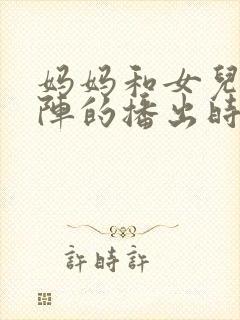 妈妈和女兒
陣的播出時
許時許